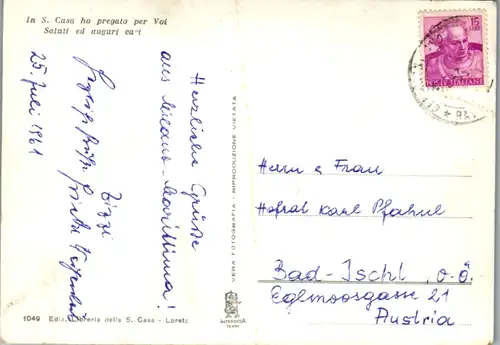 In S. Casa ho pregato per Voi
Saluti ed auguri cari
Herzliche Grüße
aus Milano-Marittima!
Tizzi
25. Juli 1961
VERA FOTOGRAFIA - RIPRODUZIONE VIETATA
1049 Ediz. Libreria della S. Casa - Loreto
15
LIRE
POSTE ITALIANE
Herrn & Frau
Hofrat Karl Pfahnl
Bad-Ischl, o.ö.
Eglmoosgasse 21
Austria